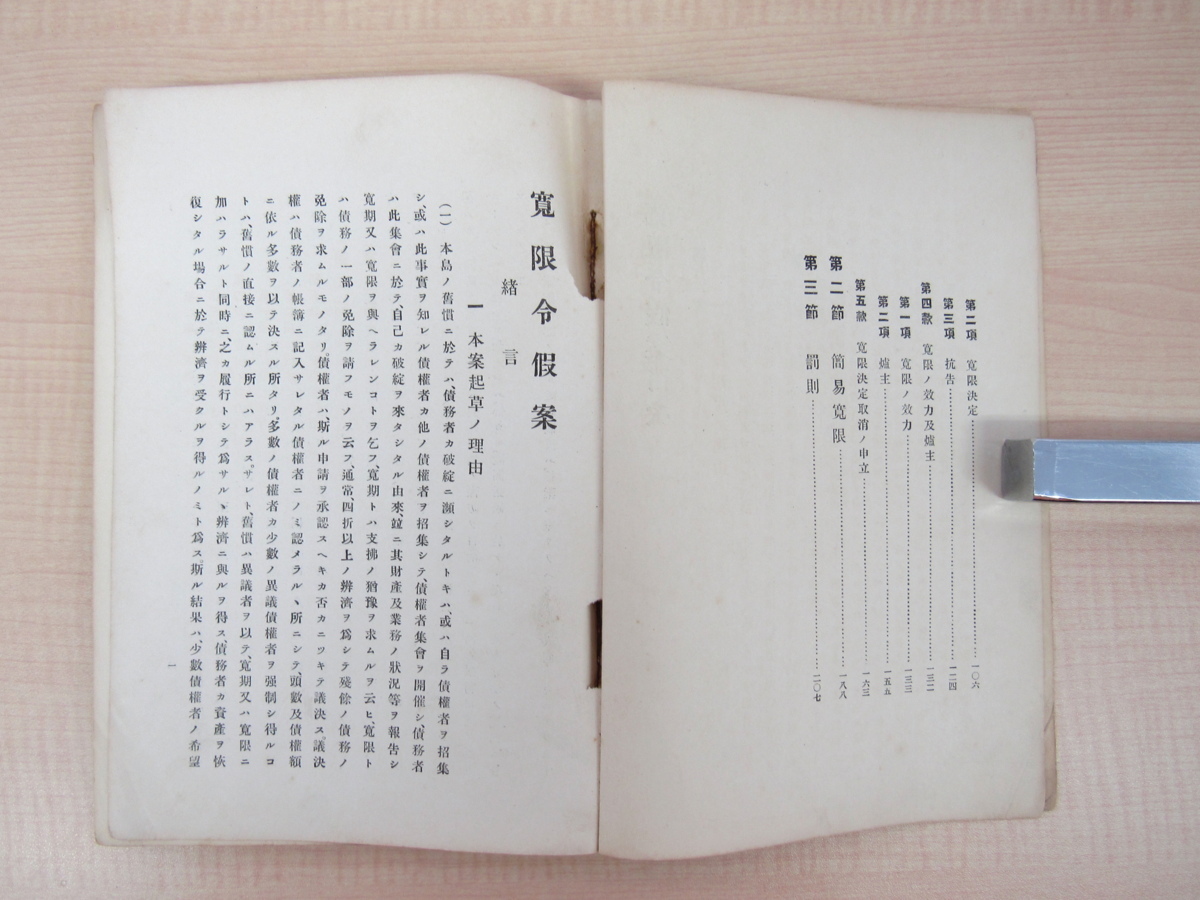 第二項 寬限決定……一〇六
第三項 抗告……一二四
第四款 寬限ノ效力及爐主……一三二
第一項 寬限ノ效力……一三三
第二項 爐主……一五五
第五款 寬限決定取消ノ申立……一六三
第二節 簡易寬限……一八八
第三節 罰則……二〇七
寬限令假案
緒言
一 本案起草ノ理由
(一) 本島ノ舊慣ニ於テハ、債務者カ破綻ニ瀕シタルトキハ、或ハ自ラ債權者ヲ招集
シ、或ハ此事實ヲ知レル債權者カ他ノ債權者ヲ招集シテ、債權者集會ヲ開催シ、債務者
ハ此集會ニ於テ、自己カ破綻ヲ來タシタル由來、竝ニ其財產及業務ノ狀況等ヲ報告シ
寬期又ハ寬限ヲ與ヘラレンコトヲ乞フ、寬期トハ支拂ノ猶豫ヲ求ムルヲ云ヒ、寬限ト
ハ債務ノ一部ノ免除ヲ請フモノヲ云フ、通常、四折以上ノ辨濟ヲ爲シテ殘餘ノ債務ノ
免除ヲ求ムルモノタリ。債權者ハ、斯ル申請ヲ承認スヘキカ否カニツキテ議決ス。議決
權ハ債務者ノ帳簿ニ記入サレタル債權者ニノミ認メラルヽ所ニシテ、頭數及債權額
ニ依ル多數ヲ以テ決スル所タリ。多數ノ債權者カ少數ノ異議債權者ヲ强制シ得ルコ
トハ、舊慣ノ直接ニ認ムル所ニハアラス。サレト、舊慣ハ異議者ヲ以テ、寬期又ハ寬限ニ
加ハラサルト同時ニ、之カ履行トシテ爲サルヽ辨濟ニ與ルヲ得ス、債務者カ資產ヲ恢
復シタル場合ニ於テ辨濟ヲ受クルヲ得ルノミト爲ス。斯ル結果ハ、少數債權者ノ希望
一